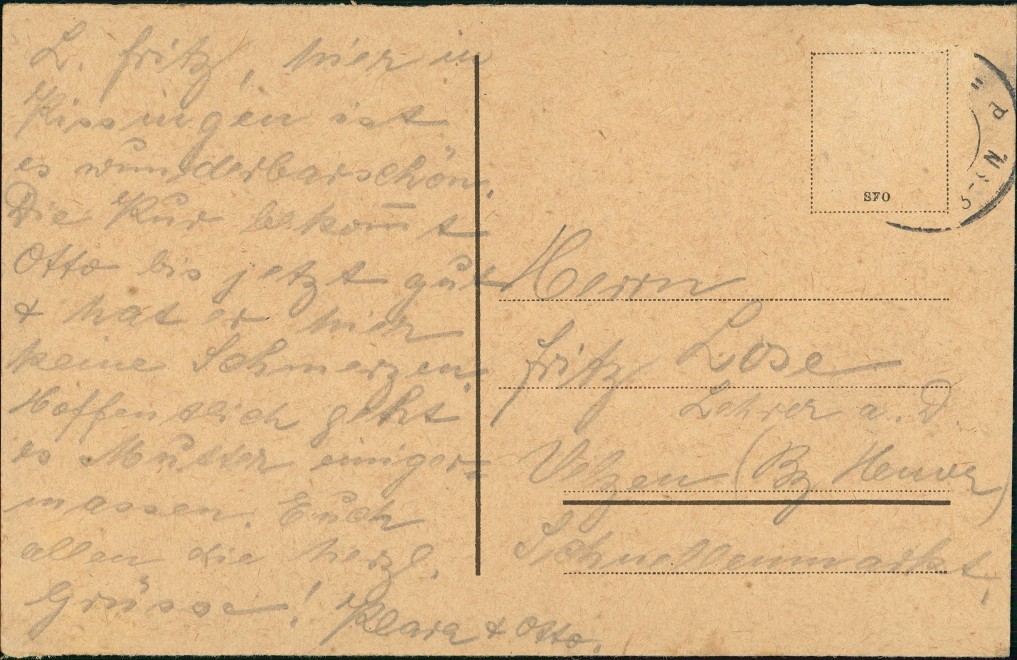 L. Fritz, hier in
Kissingen ist
es wunderbarschön.
Die Kur bekom̅t
Otto bis jetzt gut
& hat er hier
keine Schmerzen.
Hoffentlich geht
es Mutter einiger=
massen. Euch
allen die herzl.
Grüsse! Klara & Otto.
S70
Herrn
Fritz Lose
Lehrer a. D.
Uelzen (Bz Hannver)
Schnellenmarkt.